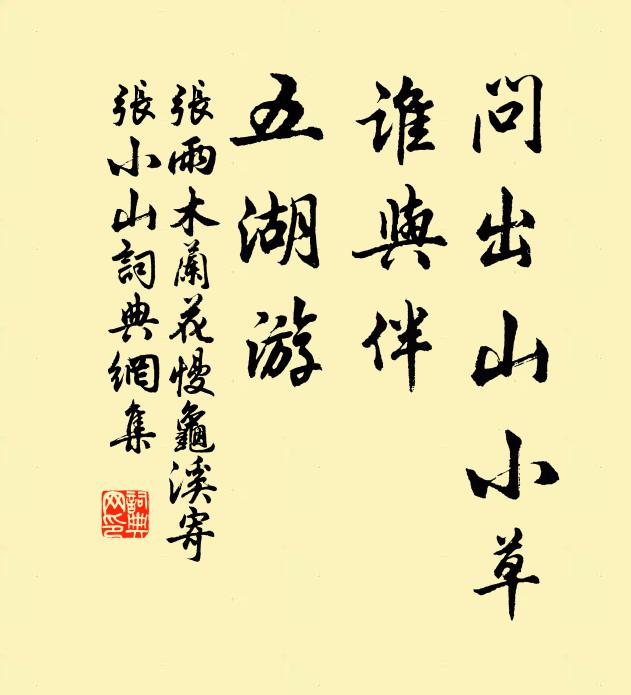 問出山小草
誰與伴
五湖游
張雨木蘭花慢龜溪寄
張小山詞典網集
詞典網印